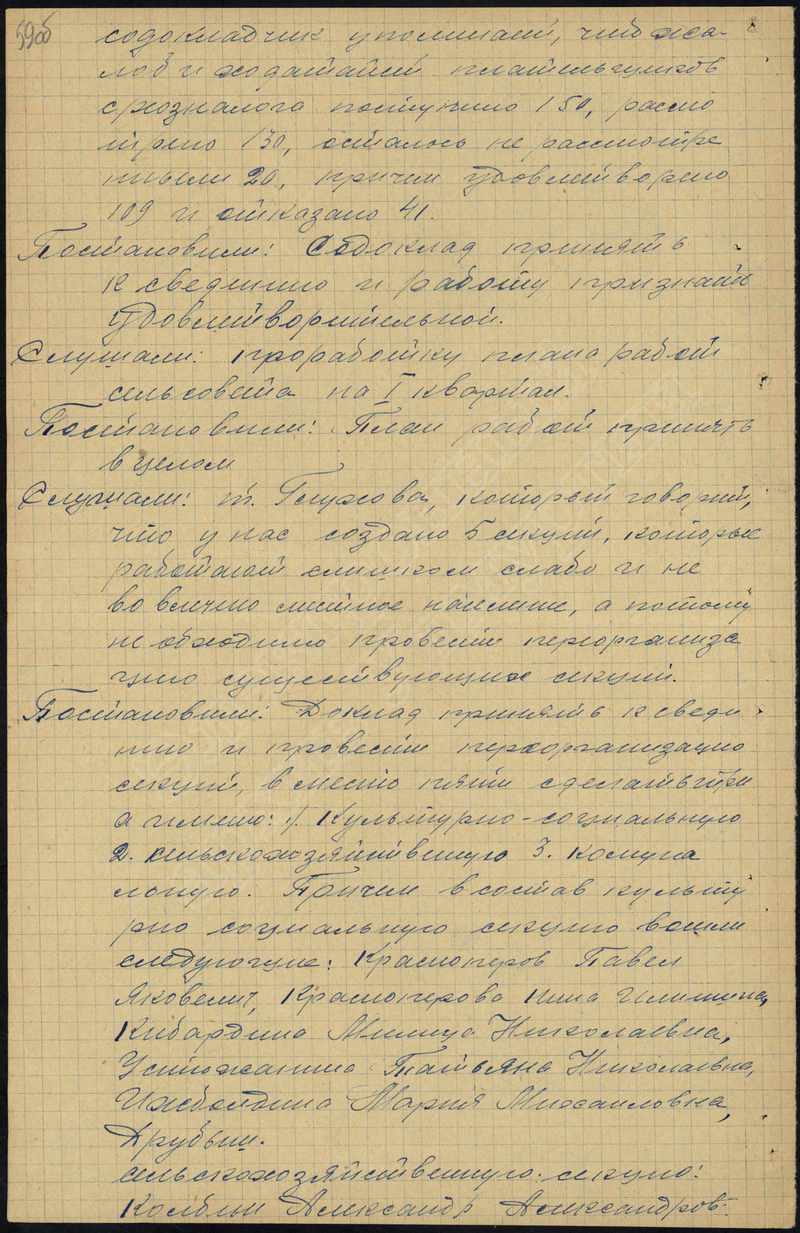 59об
содокладчик упоминает, что жа-
лоб и ходатайств плательщиков
с/хозналога поступило 150, рассмо
трено 130, осталось не рассмотре
нными 20, причем удовлетворено
109 и отказано 41.
Постановили: Содоклад принять
к сведению и работу признать
удовлетворительной.
Слушали: проработку плана работ
сельсовета на I квартал.
Постановили: План работ принять
в целом
Слушали: т. Глухова, который говорит,
что у нас создано 5 секций, которые
работают слишком слабо и не
во влечено местное население, а потому
необходимо провести переорганиза
цию существующих секций.
Постановили: Доклад принять к сведе
нию и провести переорганизацию
секций, вместо пяти сделать три
а именно: 1. Культурно-социальную
2. сельскохозяйственную 3. комуна
льную. Причем в состав культу
рно социальную секцию вошли
следующие: Красноперов Павел
Яковлевич, Красноперова Нина
Кибардина Милица Николаевна,
Устюжанина Татьяна Николаевна,
Ижболдина Мария Михайловна,
сельскохозяйственную секцию:
Александр Александров-